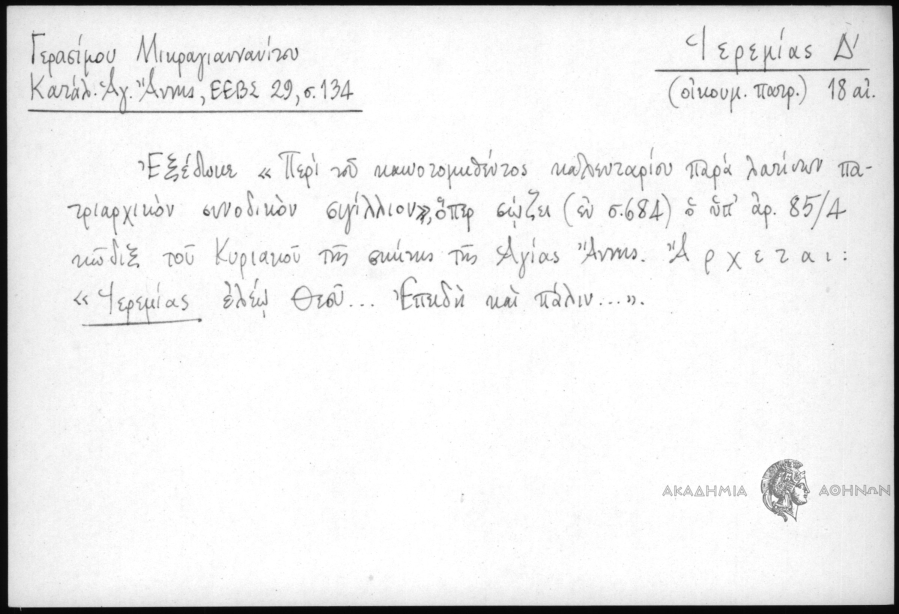 Γερασίμου Μικραγιαννανίτου
Κατάλ. Ἁγ. Ἄννης, ΕΕΒΣ 29, σ. 134
Ἱερεμίας Δ'
(οἰκουμ. πατρ.) 18 αἰ.
Ἐξέδωκε « Περὶ τοῦ καινοτομηθέντος καλενταρίου παρὰ λατίνων πα-
τριαρχικὸν συνοδικὸν σιγίλλιον», ὅπερ σῴζει (ἐν σ. 684) ὁ ὑπ' ἀρ. 85/4
κῶδιξ τοῦ Κυριακοῦ τῆς σκήτης τῆς Ἁγίας Ἄννης. Ἄρχεται:
« Ἱερεμίας ἐλέῳ Θεοῦ... Ἐπειδὴ καὶ πάλιν...».
ΑΚΑΔΗΜΙΑ ΑΘΗΝΩΝ